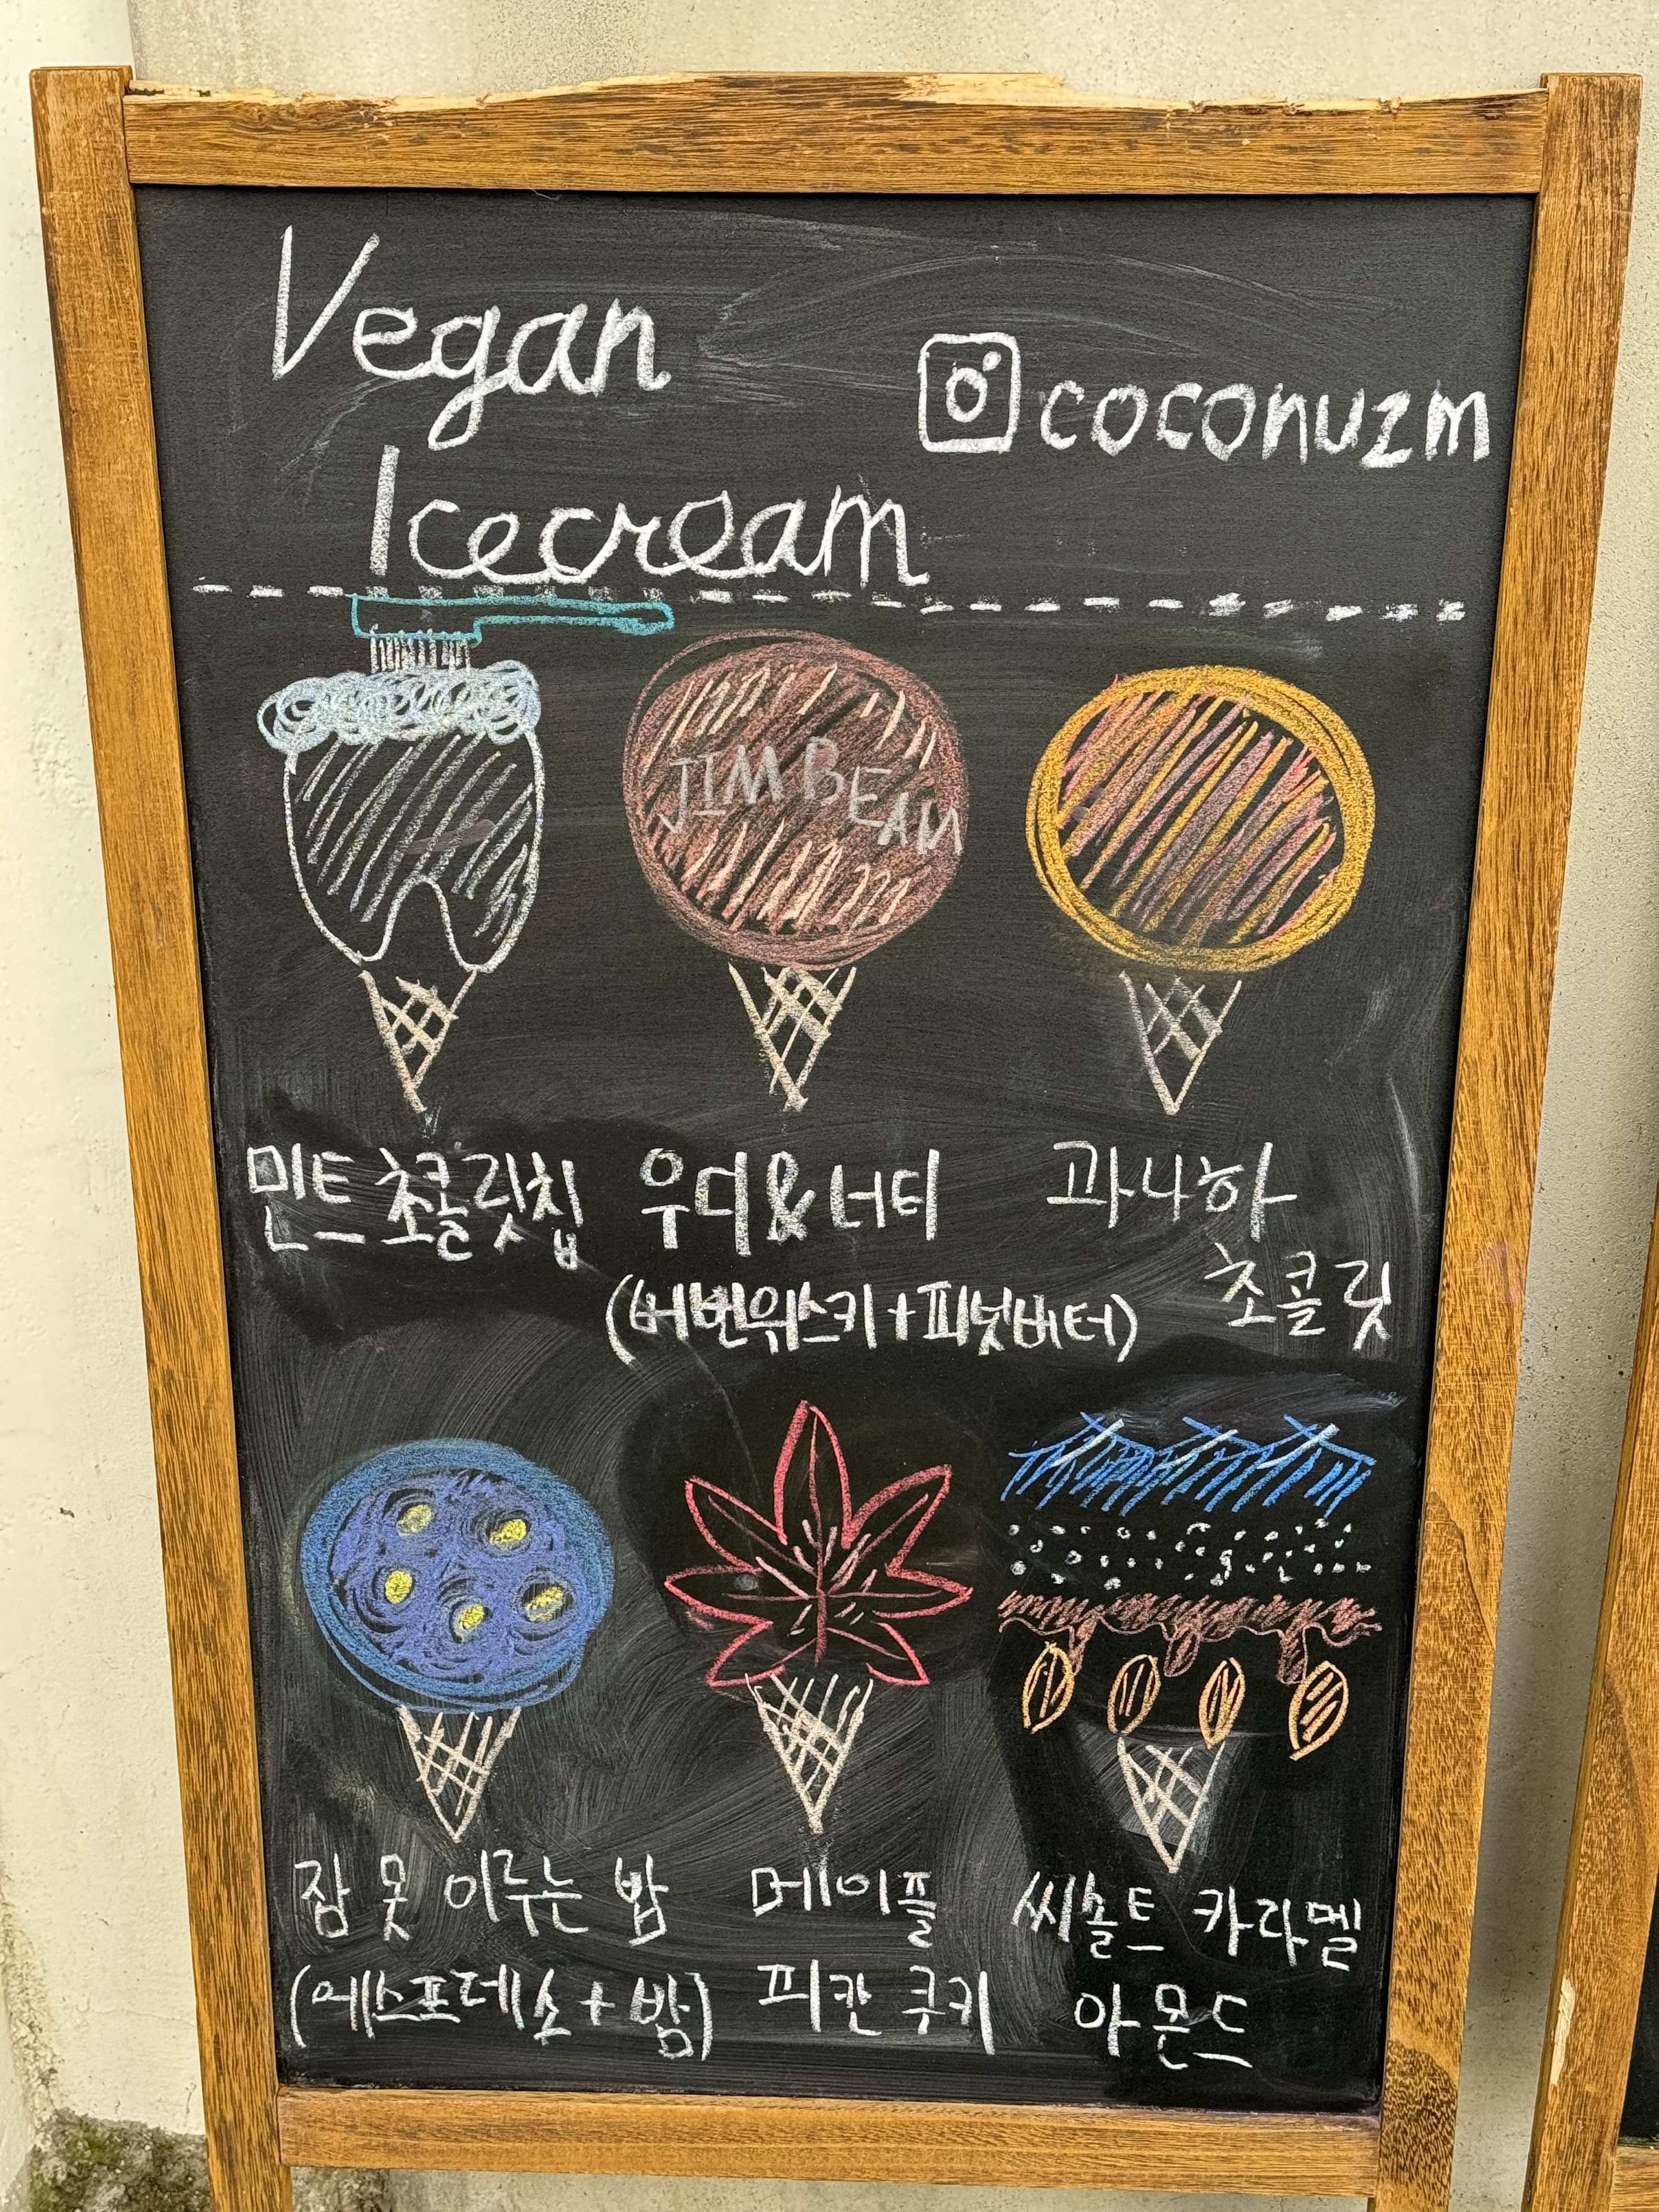 Vegan
Icecream
coconuzm
JIM BEAM
민트 초콜릿칩
우디&너티
(버번위스키+피넛버터)
과나하
초콜릿
잠 못 이루는 밤
(에스프레소+밤)
메이플
피칸 쿠키
씨솔트 카라멜
아몬드